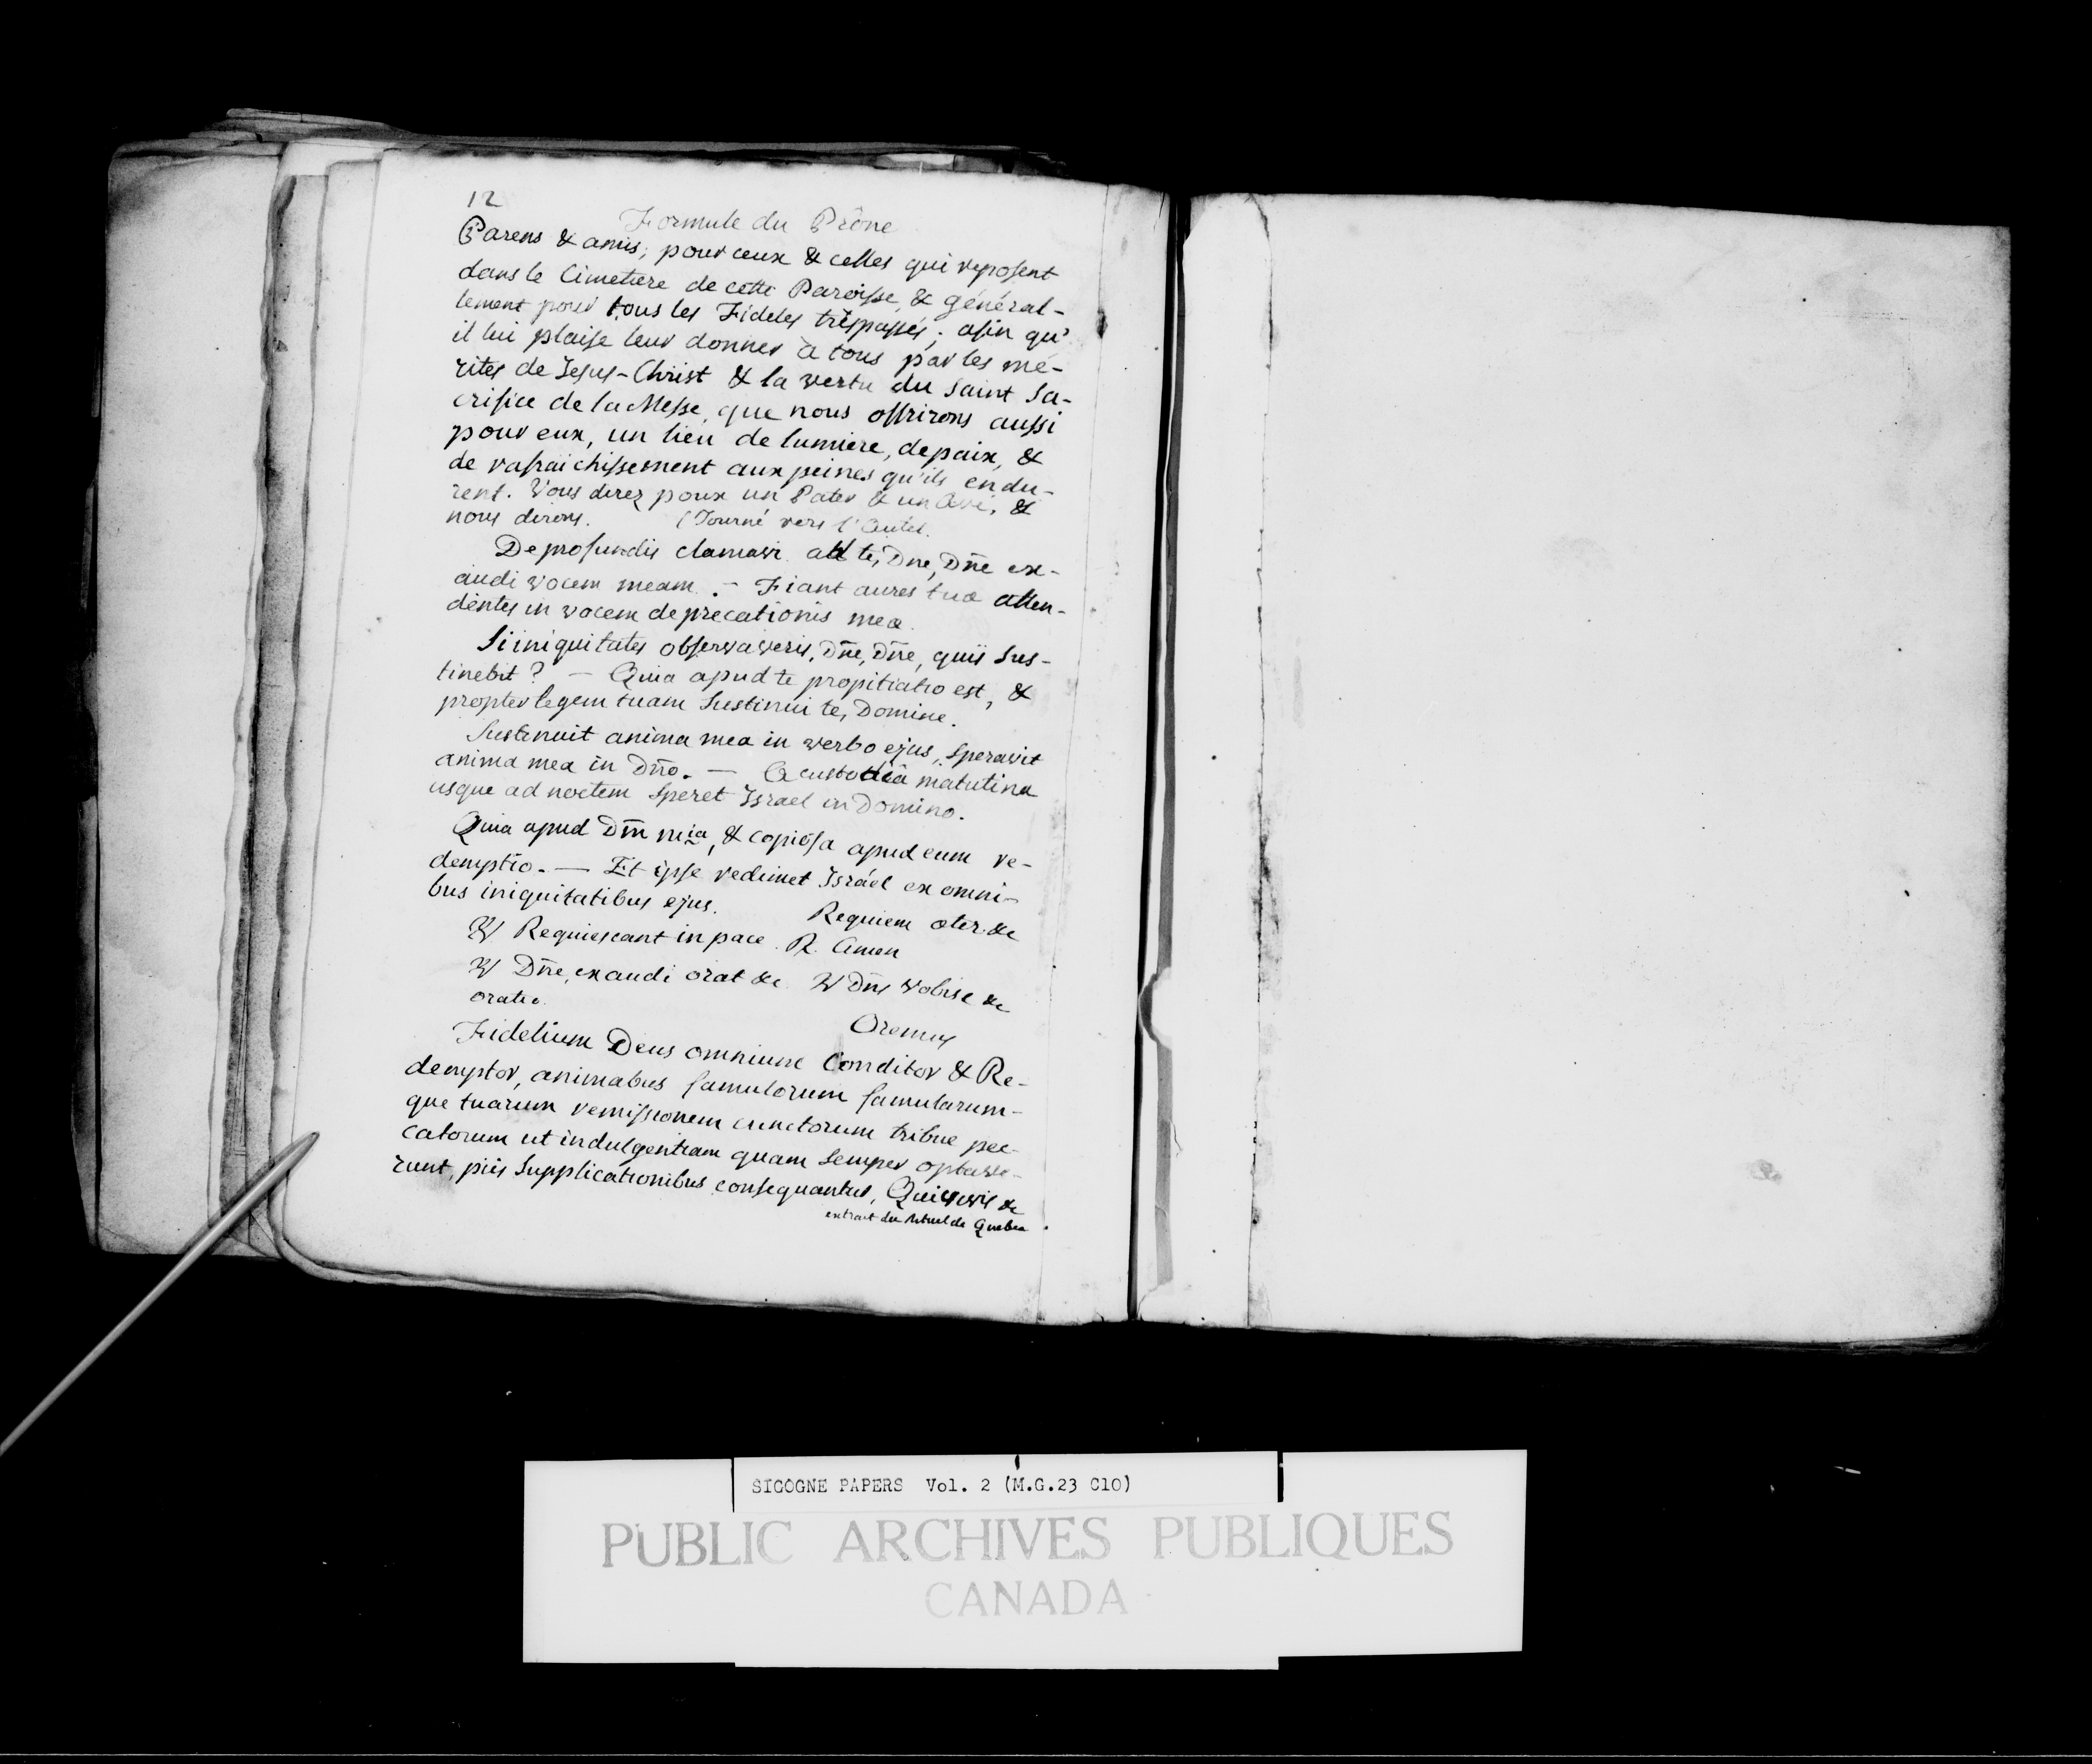 12
Formule du Prône
Parens & amis; pour ceux & celles qui reposent
dans le Cimetiere de cette Paroisse, & général-
lement pour tous les Fideles trépassés; afin qu'
il lui plaise leur donner à tous par les mé-
rites de Jesus-Christ & la vertu du Saint Sa-
crifice de la Messe, que nous offrirons aussi
pour eux, un lieu de lumiere, de paix, &
de rafraichissement aux peines qu'ils endu-
rent. Vous direz pour un Pater & un Avé, &
nous dirons. (Tourné vers l'Autel.
De profundis clamavi ad te, Dne, Dñe ex-
audi vocem meam. - Fiant aures tuæ atten-
dentes in vocem deprecationis meæ.
Si iniquitates observaveris, Dñe, Dñe, quis sus-
tinebit? - Quia apud te propitiatio est, &
propter legem tuam Sustinui te, Domine.
Sustinuit anima mea in verbo ejus, Speravit
anima mea in Dño. - A custodiâ matutina
usque ad noctem Speret Israel in Domino.
Quia apud Dm̃ mia, & copiósa apud eum re-
demptio. - Et ipse redimet Israél ex omni-
bus iniquitatibus ejus. Requiem æter. &c
℣ Requiescant in pace. ℟. Amen
℣ Dñe, exaudi orat &c. ℣ Dñs vobisc &c
oratio.
Oremus
Fidelium Deus omnium Conditor & Re-
demptor, animabus famulorum famularum-
que tuarum remissionem cunctorum tribue pec-
catorum ut indulgentiam quam semper optave-
runt, piis Supplicationibus consequantur, Qui vivis &c
extrait du rituel de Quebec
SIGOGNE PAPERS Vol. 2 (M.G.23 C10)
PUBLIC ARCHIVES PUBLIQUES
CANADA